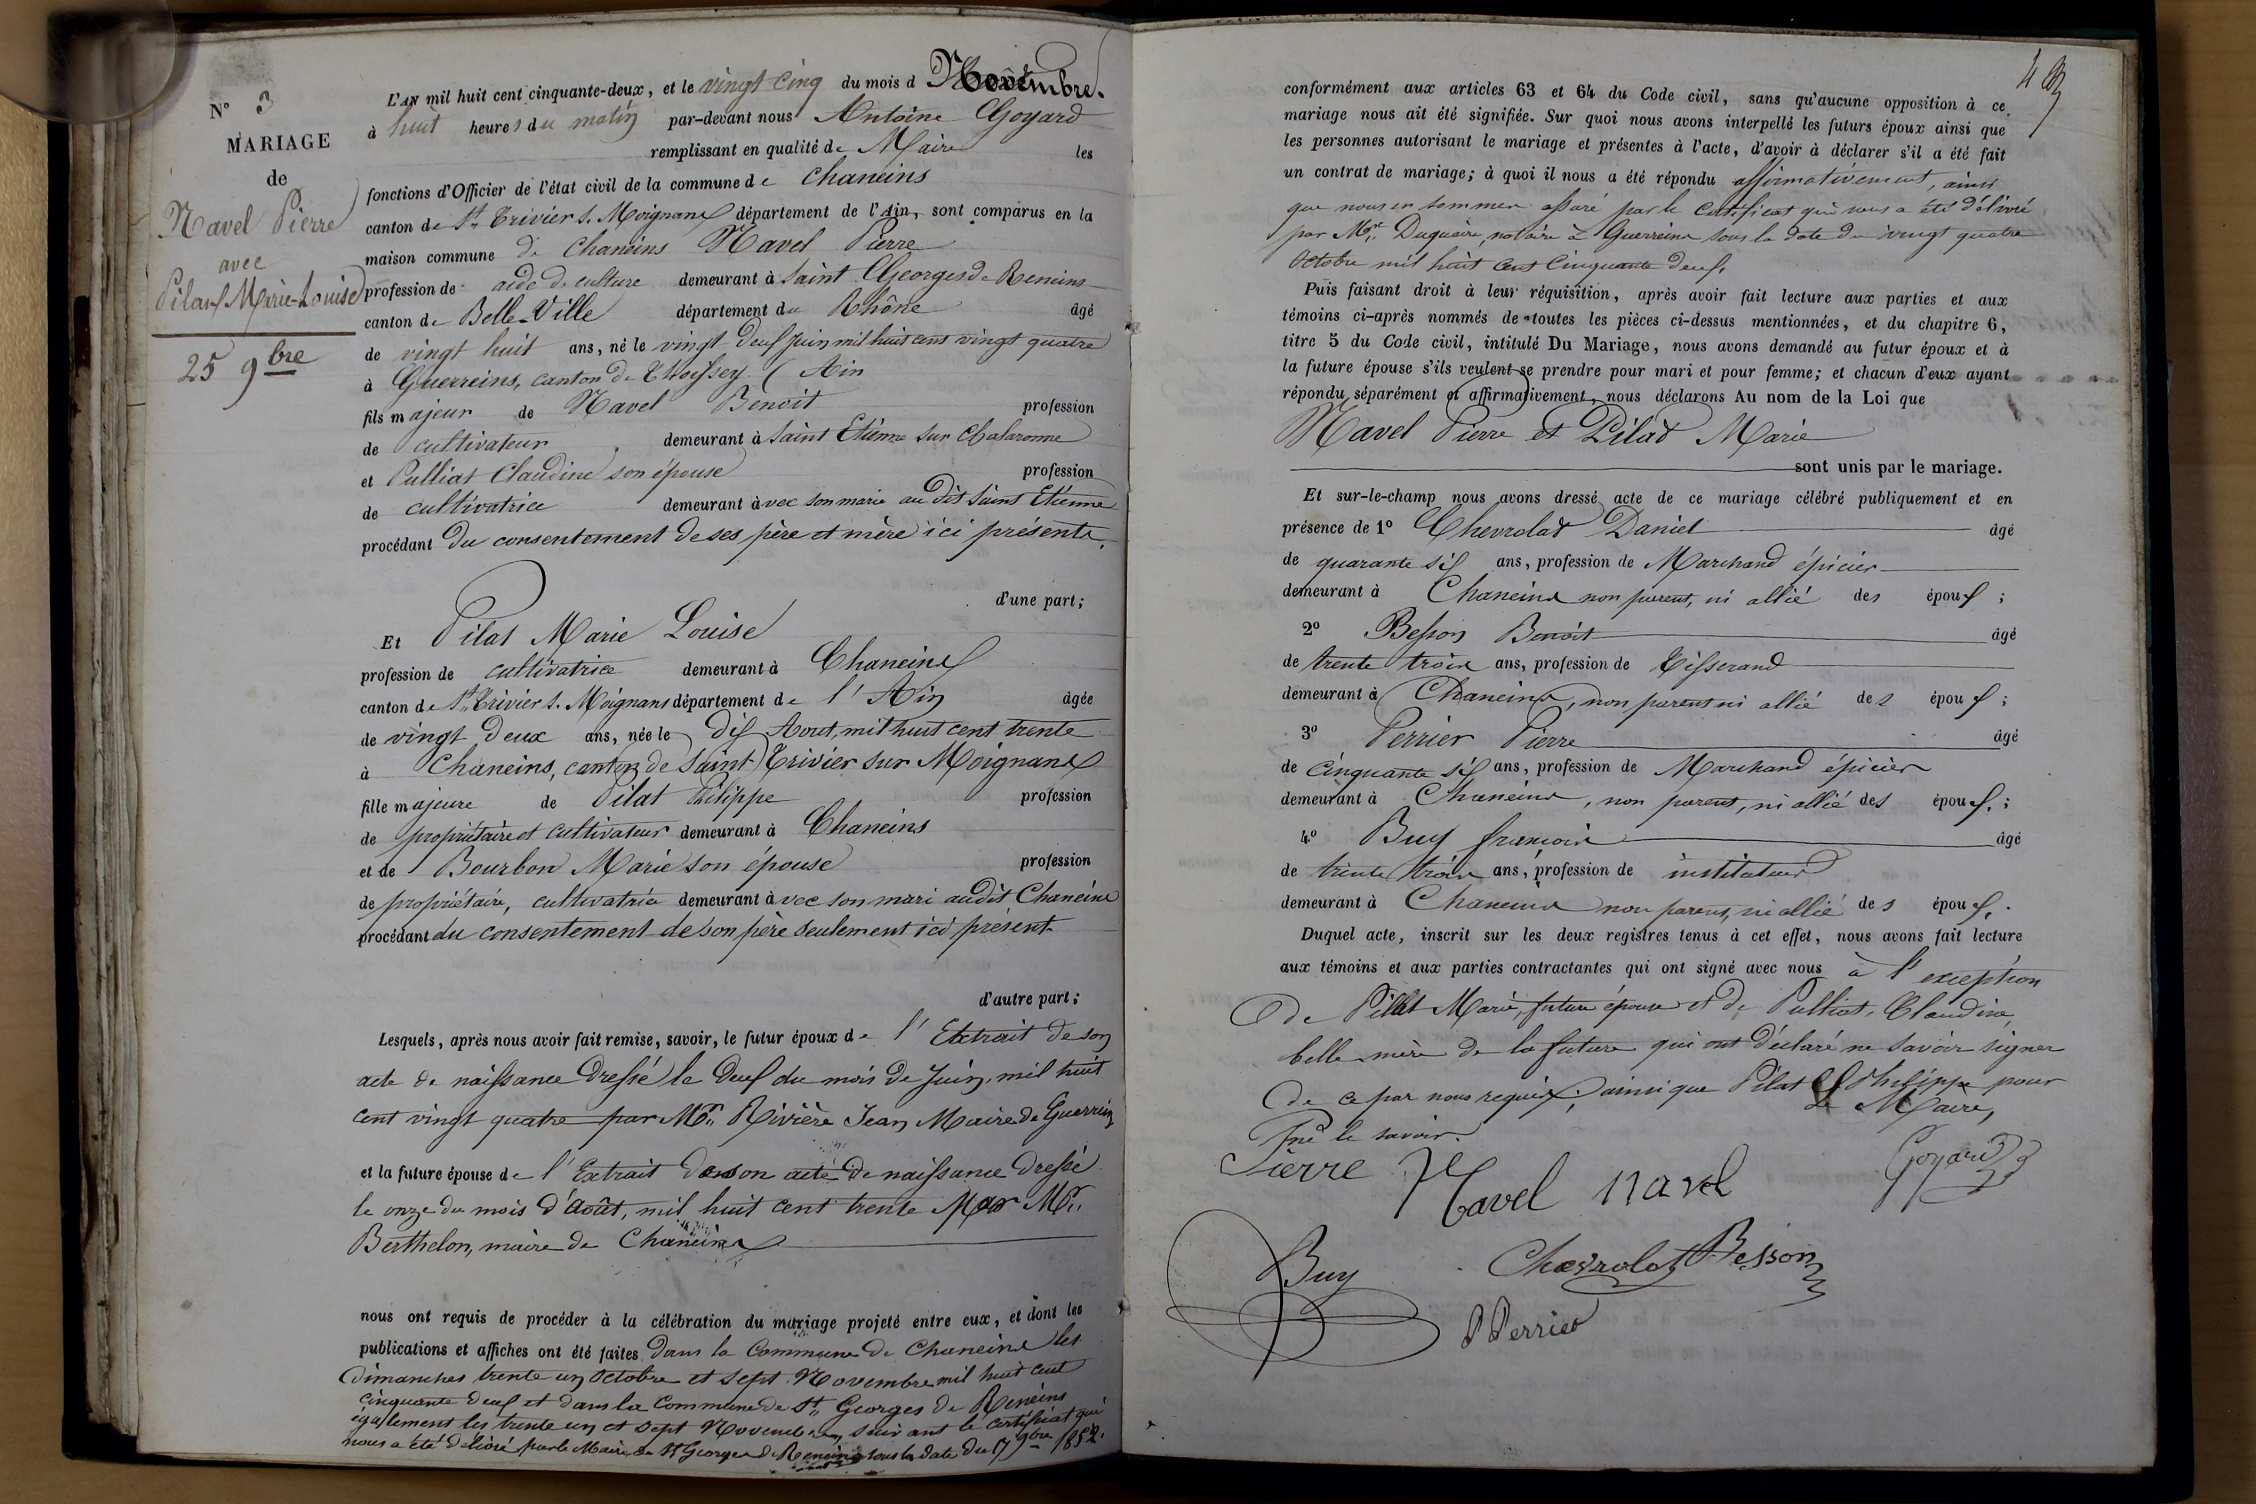 N° 3
MARIAGE
de
Navel Pierre
avec
Pilat Marie-Louise
25 9bre
L'AN mil huit cent cinquante-deux, et le vingt cinq du mois d Novembre.
à huit heures du matin par-devant nous Antoine Goyard
remplissant en qualité de Maire les
fonctions d'Officier de l'état civil de la commune de Chaneins
canton de St Trivier s. Moignans département de l'Ain, sont comparus en la
maison commune de Chaneins Navel Pierre
profession de aide de culture demeurant à Saint Georges de Reneins
canton de Belle-Ville département du Rhône âgé
de vingt huit ans, né le vingt deux juin mil huit cent vingt quatre
à Guerreins, canton de Thoissey (Ain
fils majeur de Navel Benoit profession
de cultivateur demeurant à Saint Etienne sur Chalaronne
et Pulliat Claudine son épouse profession
de cultivatrice demeurant avec son marie au dit Saint Etienne
procédant du consentement de ses père et mère ici présents,
d'une part;
Et Pilat Marie Louise
profession de cultivatrice demeurant à Chaneins
canton de St Trivier s. Moignans département de l'Ain âgée
de vingt deux ans, née le dix Aout, mil huit cent trente
à Chaneins, canton de Saint Trivier sur Moignans
fille majeure de Pilat Philippe profession
de propriétaire et cultivateur demeurant à Chaneins
et de Bourbon Marie son épouse profession
de propriétaire, cultivatrice demeurant avec son mari audit Chaneins
procédant du consentement de son père seulement ici présent
d'autre part;
Lesquels, après nous avoir fait remise, savoir, le futur époux de l'Extrait de son
acte de naissance dressé le deux du mois de Juin, mil huit
cent vingt quatre par Mr. Rivière Jean Maire de Guerrein
et la future épouse de l'Extrait de son acte de naissance dressé
le onze du mois d'août, mil huit cent trente par Mr.
Berthelon, maire de Chaneins
nous ont requis de procéder à la célébration du mariage projeté entre eux, et dont les
publications et affiches ont été faites dans la Commune de Chaneins les
dimanches trente un Octobre et sept Novembre mil huit cent
cinquante deux et dans la Commune de St Georges de Reneins
également les trente un et sept Novembre, suivant le certificat qui
nous a été délivré par le Maire de St Georges de Reneins sous la date du 17 9bre 1852.
conformément aux articles 63 et 64 du Code civil, sans qu'aucune opposition à ce
mariage nous ait été signifiée. Sur quoi nous avons interpellé les futurs époux ainsi que
les personnes autorisant le mariage et présentes à l'acte, d'avoir à déclarer s'il a été fait
un contrat de mariage; à quoi il nous a été répondu affirmativement, ainsi
que nous en sommes assuré par le Certificat qui nous a été délivré
par Mre. Duquaire, notaire à Guerreins sous la date du vingt quatre
Octobre mil huit cent Cinquante deux,
Puis faisant droit à leur réquisition, après avoir fait lecture aux parties et aux
témoins ci-après nommés de toutes les pièces ci-dessus mentionnées, et du chapitre 6,
titre 5 du Code civil, intitulé Du Mariage, nous avons demandé au futur époux et à
la future épouse s'ils veulent se prendre pour mari et pour femme; et chacun d'eux ayant
répondu séparément et affirmativement, nous déclarons Au nom de la Loi que
Navel Pierre et Pilat Marie
sont unis par le mariage.
Et sur-le-champ nous avons dressé acte de ce mariage célébré publiquement et en
présence de 1° Chevrolat Daniel âgé
de quarante six ans, profession de Marchand épicier
demeurant à Chaneins non parent, ni allié des époux;
2° Besson Benoit âgé
de trente trois ans, profession de Tisserand
demeurant à Chaneins, non parent ni allié des époux;
3° Perrier Pierre âgé
de cinquante six ans, profession de Marchand épicier
demeurant à Chaneins, non parent, ni allié des époux.;
4° Buy françois âgé
de trente trois ans, profession de instituteur
demeurant à Chaneins non parent, ni allié des époux.
Duquel acte, inscrit sur les deux registres tenus à cet effet, nous avons fait lecture
aux témoins et aux parties contractantes qui ont signé avec nous à l'exception
de Pilat Marie, future épouse et de Pulliat, Claudine,
belle-mère de la future qui ont déclaré ne savoir signer
de ce par nous requis, ainsi que Pilat Philippe pour
Le Maire,
ne le savoir.
Pierre Navel navel
Goyard
Buy
Chevrolat Besson
P Perrier